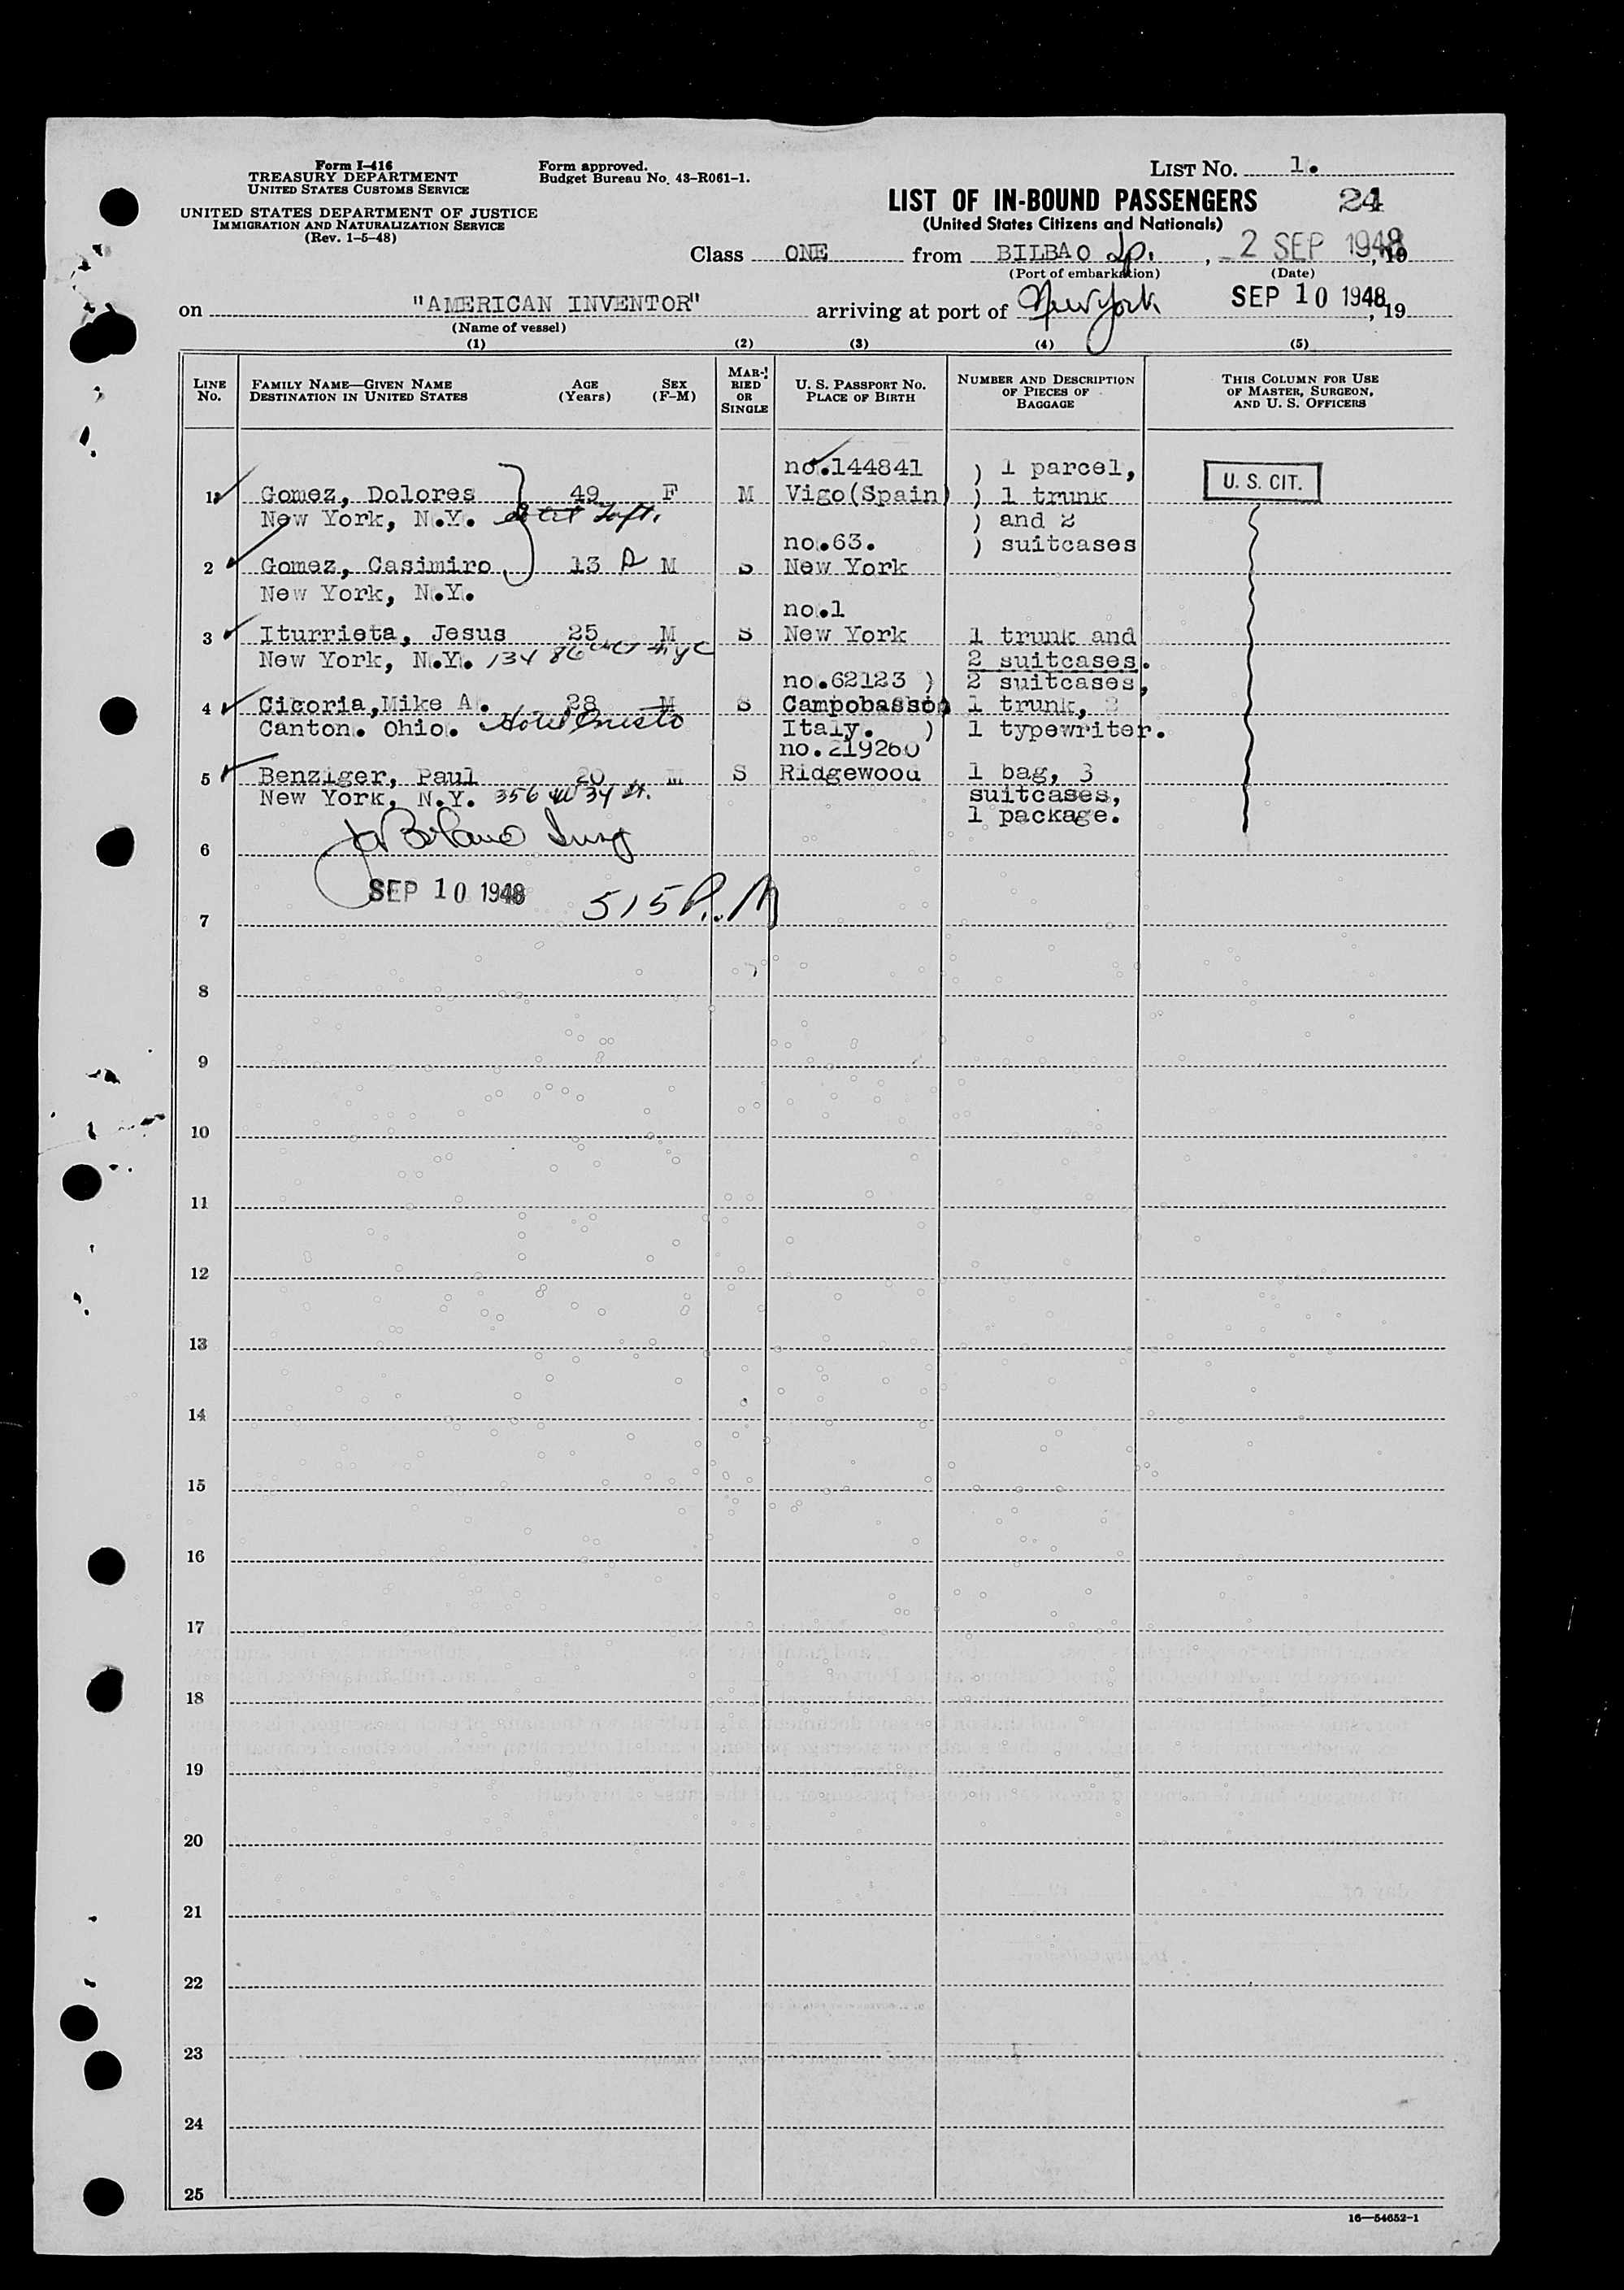 Form I-416
TREASURY DEPARTMENT
UNITED STATES CUSTOMS SERVICE
UNITED STATES DEPARTMENT OF JUSTICE
IMMIGRATION AND NATURALIZATION SERVICE
(Rev. 1-5-48)
Form approved.
Budget Bureau No. 43-R061-1.
LIST No. 1.
LIST OF IN-BOUND PASSENGERS 24
(United States Citizens and Nationals)
Class ONE from BILBAO Sp., 2 SEP 1948, 19
(Port of embarkation) (Date)
on "AMERICAN INVENTOR" arriving at port of New York SEP 10 1948, 19
(Name of vessel)
(1) (2) (3) (4) (5)
LINE No. FAMILY NAME—GIVEN NAME DESTINATION IN UNITED STATES AGE (Years) SEX (F-M) MARRIED OR SINGLE U. S. PASSPORT No. PLACE OF BIRTH NUMBER AND DESCRIPTION OF PIECES OF BAGGAGE THIS COLUMN FOR USE OF MASTER, SURGEON, AND U. S. OFFICERS
no.144841 ) 1 parcel,
1 Gomez, Dolores 49 F M Vigo(Spain) ) 1 trunk U. S. CIT.
New York, N.Y. ) and 2
no.63. ) suitcases
2 Gomez, Casimiro 13 M S New York
New York, N.Y.
no.1
3 Iturrieta, Jesus 25 M S New York 1 trunk and
New York, N.Y. 134 86 2 suitcases.
no.62123 ) 2 suitcases,
4 Cicoria, Mike A. 28 M S Campobasso) 1 trunk,
Canton. Ohio. Hotel Italy. ) 1 typewriter.
no.219260
5 Benziger, Paul 20 M S Ridgewood 1 bag, 3
New York, N.Y. 356 W 34 St. suitcases,
1 package.
6
SEP 10 1948 515 P.M
7
8
9
10
11
12
13
14
15
16
17
18
19
20
21
22
23
24
25
16—54652-1